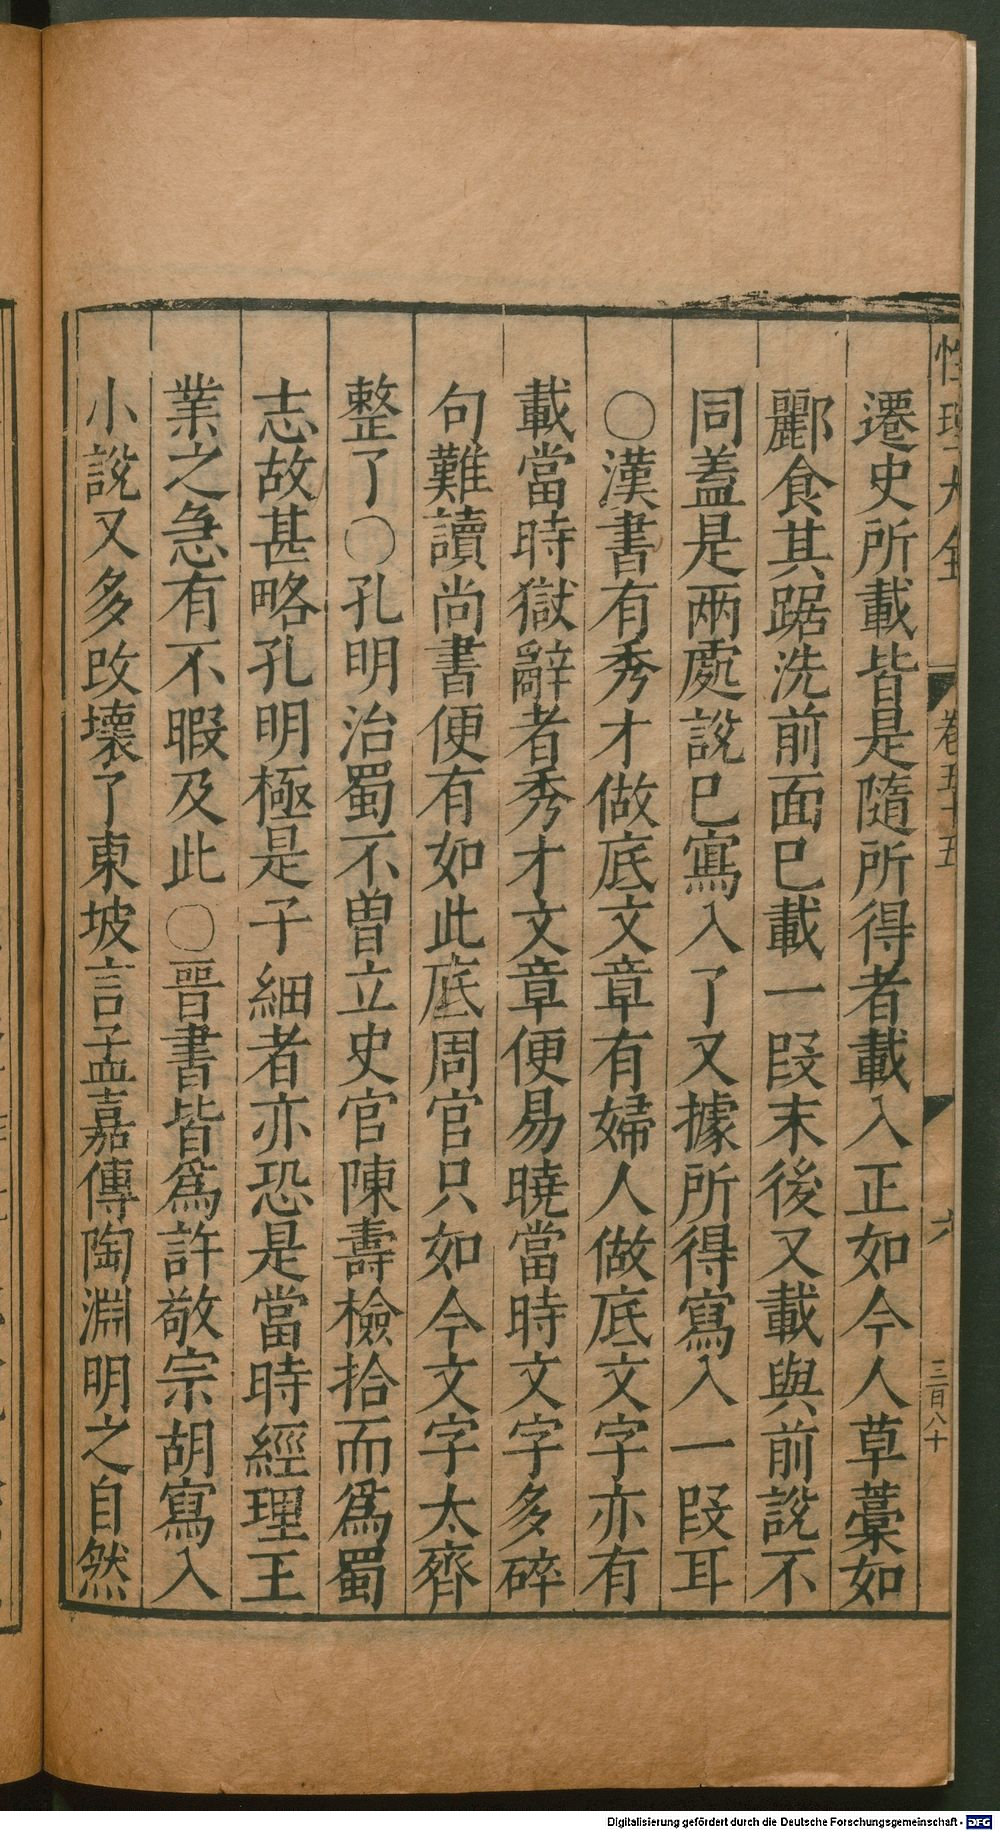 性理大全 卷五十五 六 三百八十
遷史所載皆是隨所得者載入正如今人草藁如
酈食其踞洗前面已載一段末後又載與前說不
同蓋是兩處說已寫入了又據所得寫入一段耳
○漢書有秀才做底文章有婦人做底文字亦有
載當時獄辭者秀才文章便易曉當時文字多碎
句難讀尚書便有如此底周官只如今文字太齊
整了○孔明治蜀不曾立史官陳壽檢拾而爲蜀
志故甚略孔明極是子細者亦恐是當時經理王
業之急有不暇及此○晉書皆爲許敬宗胡寫入
小說又多改壞了東坡言孟嘉傳陶淵明之自然
Digitalisierung gefördert durch die Deutsche Forschungsgemeinschaft - DFG